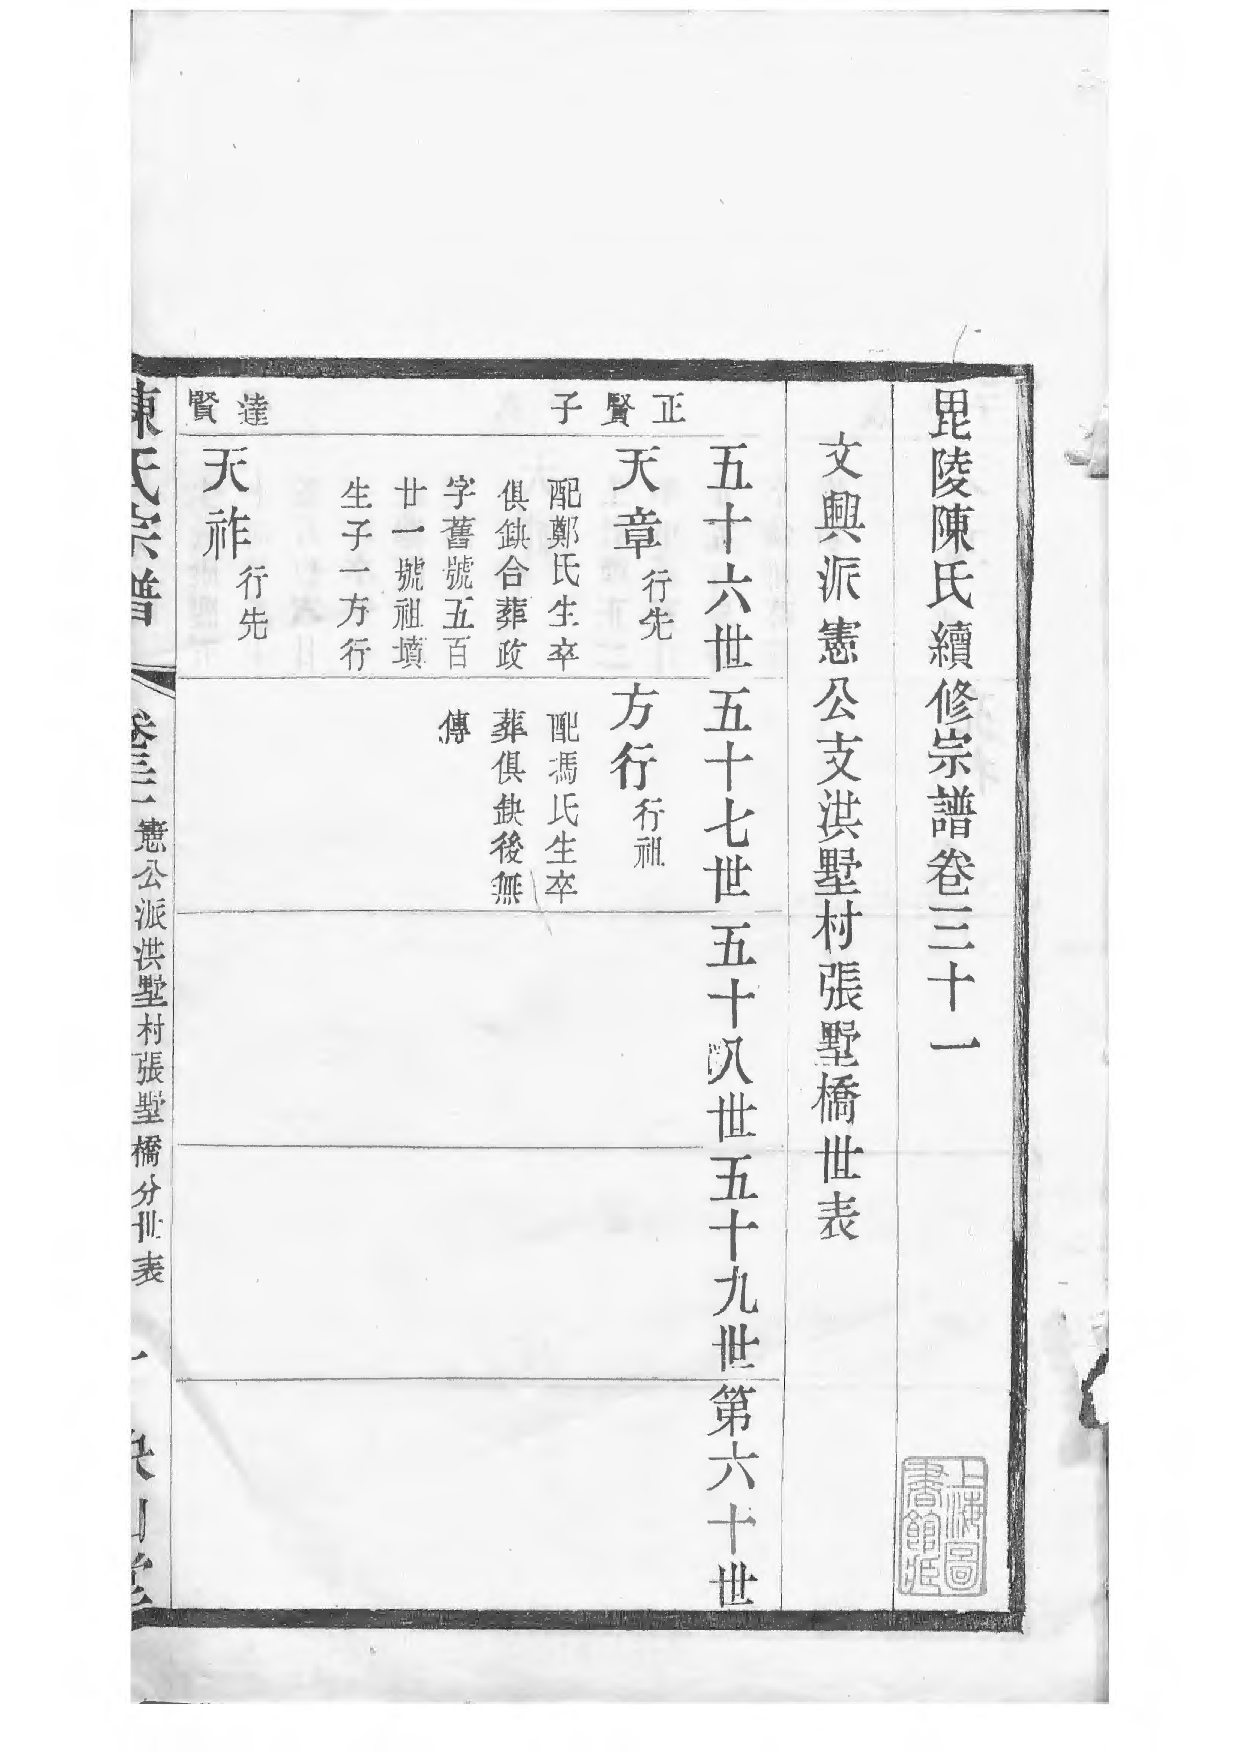 毘陵陳氏續修宗譜卷三十一
文興派憲公支洪墅村張墅橋世表
五十六世
五十七世
五十八世
五十九世
第六十世
正賢子
天章行先
配鄭氏生卒
俱缺合葬政
字舊號五百
廿一號祖墳
生子一方行
方行行祖
配馮氏生卒
葬俱缺後無
傳
達賢
天祚行先
陳氏宗譜
卷三一
憲公派洪墅村張墅橋分世表
一
上海圖書館藏